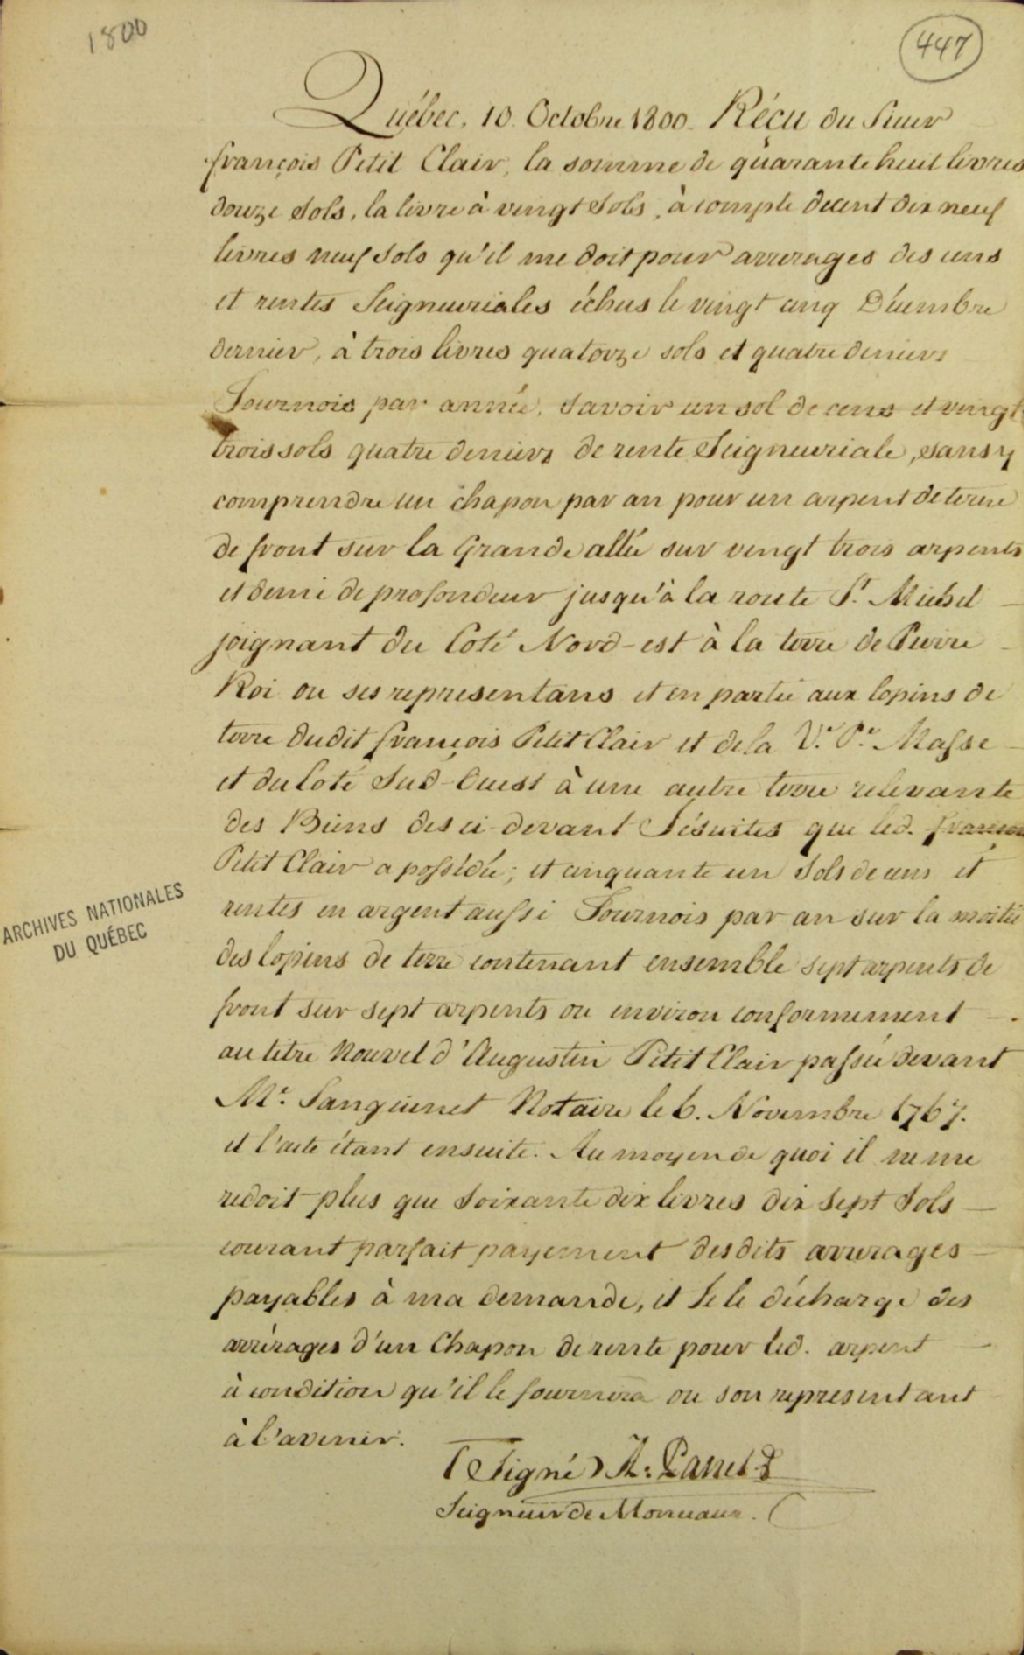 1800
447
Québec, 10. Octobre 1800. Réçu du Sieur
françois Petit Clair, la somme de quarante huit livres
douze Sols, la livre à vingt Sols, à compte decent dix neuf
livres neuf Sols qu'il me doit pour arrerages des cens
et rentes Seigneuriales échus le vingt cinq Décembre
dernier, à trois livres quatorze sols et quatre deniers
Tournois par année. Savoir un sol de cens et vingt
trois sols quatre deniers de rente Seigneuriale, sans y
comprendre un chapon par an pour un arpent de terre
de front sur la Grande allée sur vingt trois arpents
et demi de profondeur jusqu'à la route St. Michel
joignant du Coté Nord-est à la terre de Pierre
Roi ou ses representans et en partie aux lopins de
terre dudit françois Petit Clair et de la Ve. Pre. Masse
et du Coté Sud-Ouest à une autre terre relevante
des Biens des ci-devant Jésuites que led. françois
Petit Clair a possédée; et cinquante un Sols de cens et
rentes en argent aussi Tournois par an sur la moitié
des lopins de terre contenant ensemble sept arpents de
front sur sept arpents ou environ conformement
au titre Nouvel d'Augustin Petit Clair passé devant
Me. Sanguinet Notaire le 6. Novembre 1767.
et l'acte étant ensuite. Au moyen de quoi il ne me
redoit plus que Soixante dix livres dix Sept Sols
courant parfait payement desdits arrerages
payables à ma demande, et Je le décharge des
arrérages d'un Chapon de rente pour led. arpent
à condition qu'il le fournira ou son representant
à l'avenir.
(Signé) A: Panet
Seigneur de Monceaux.
ARCHIVES NATIONALES
DU QUÉBEC